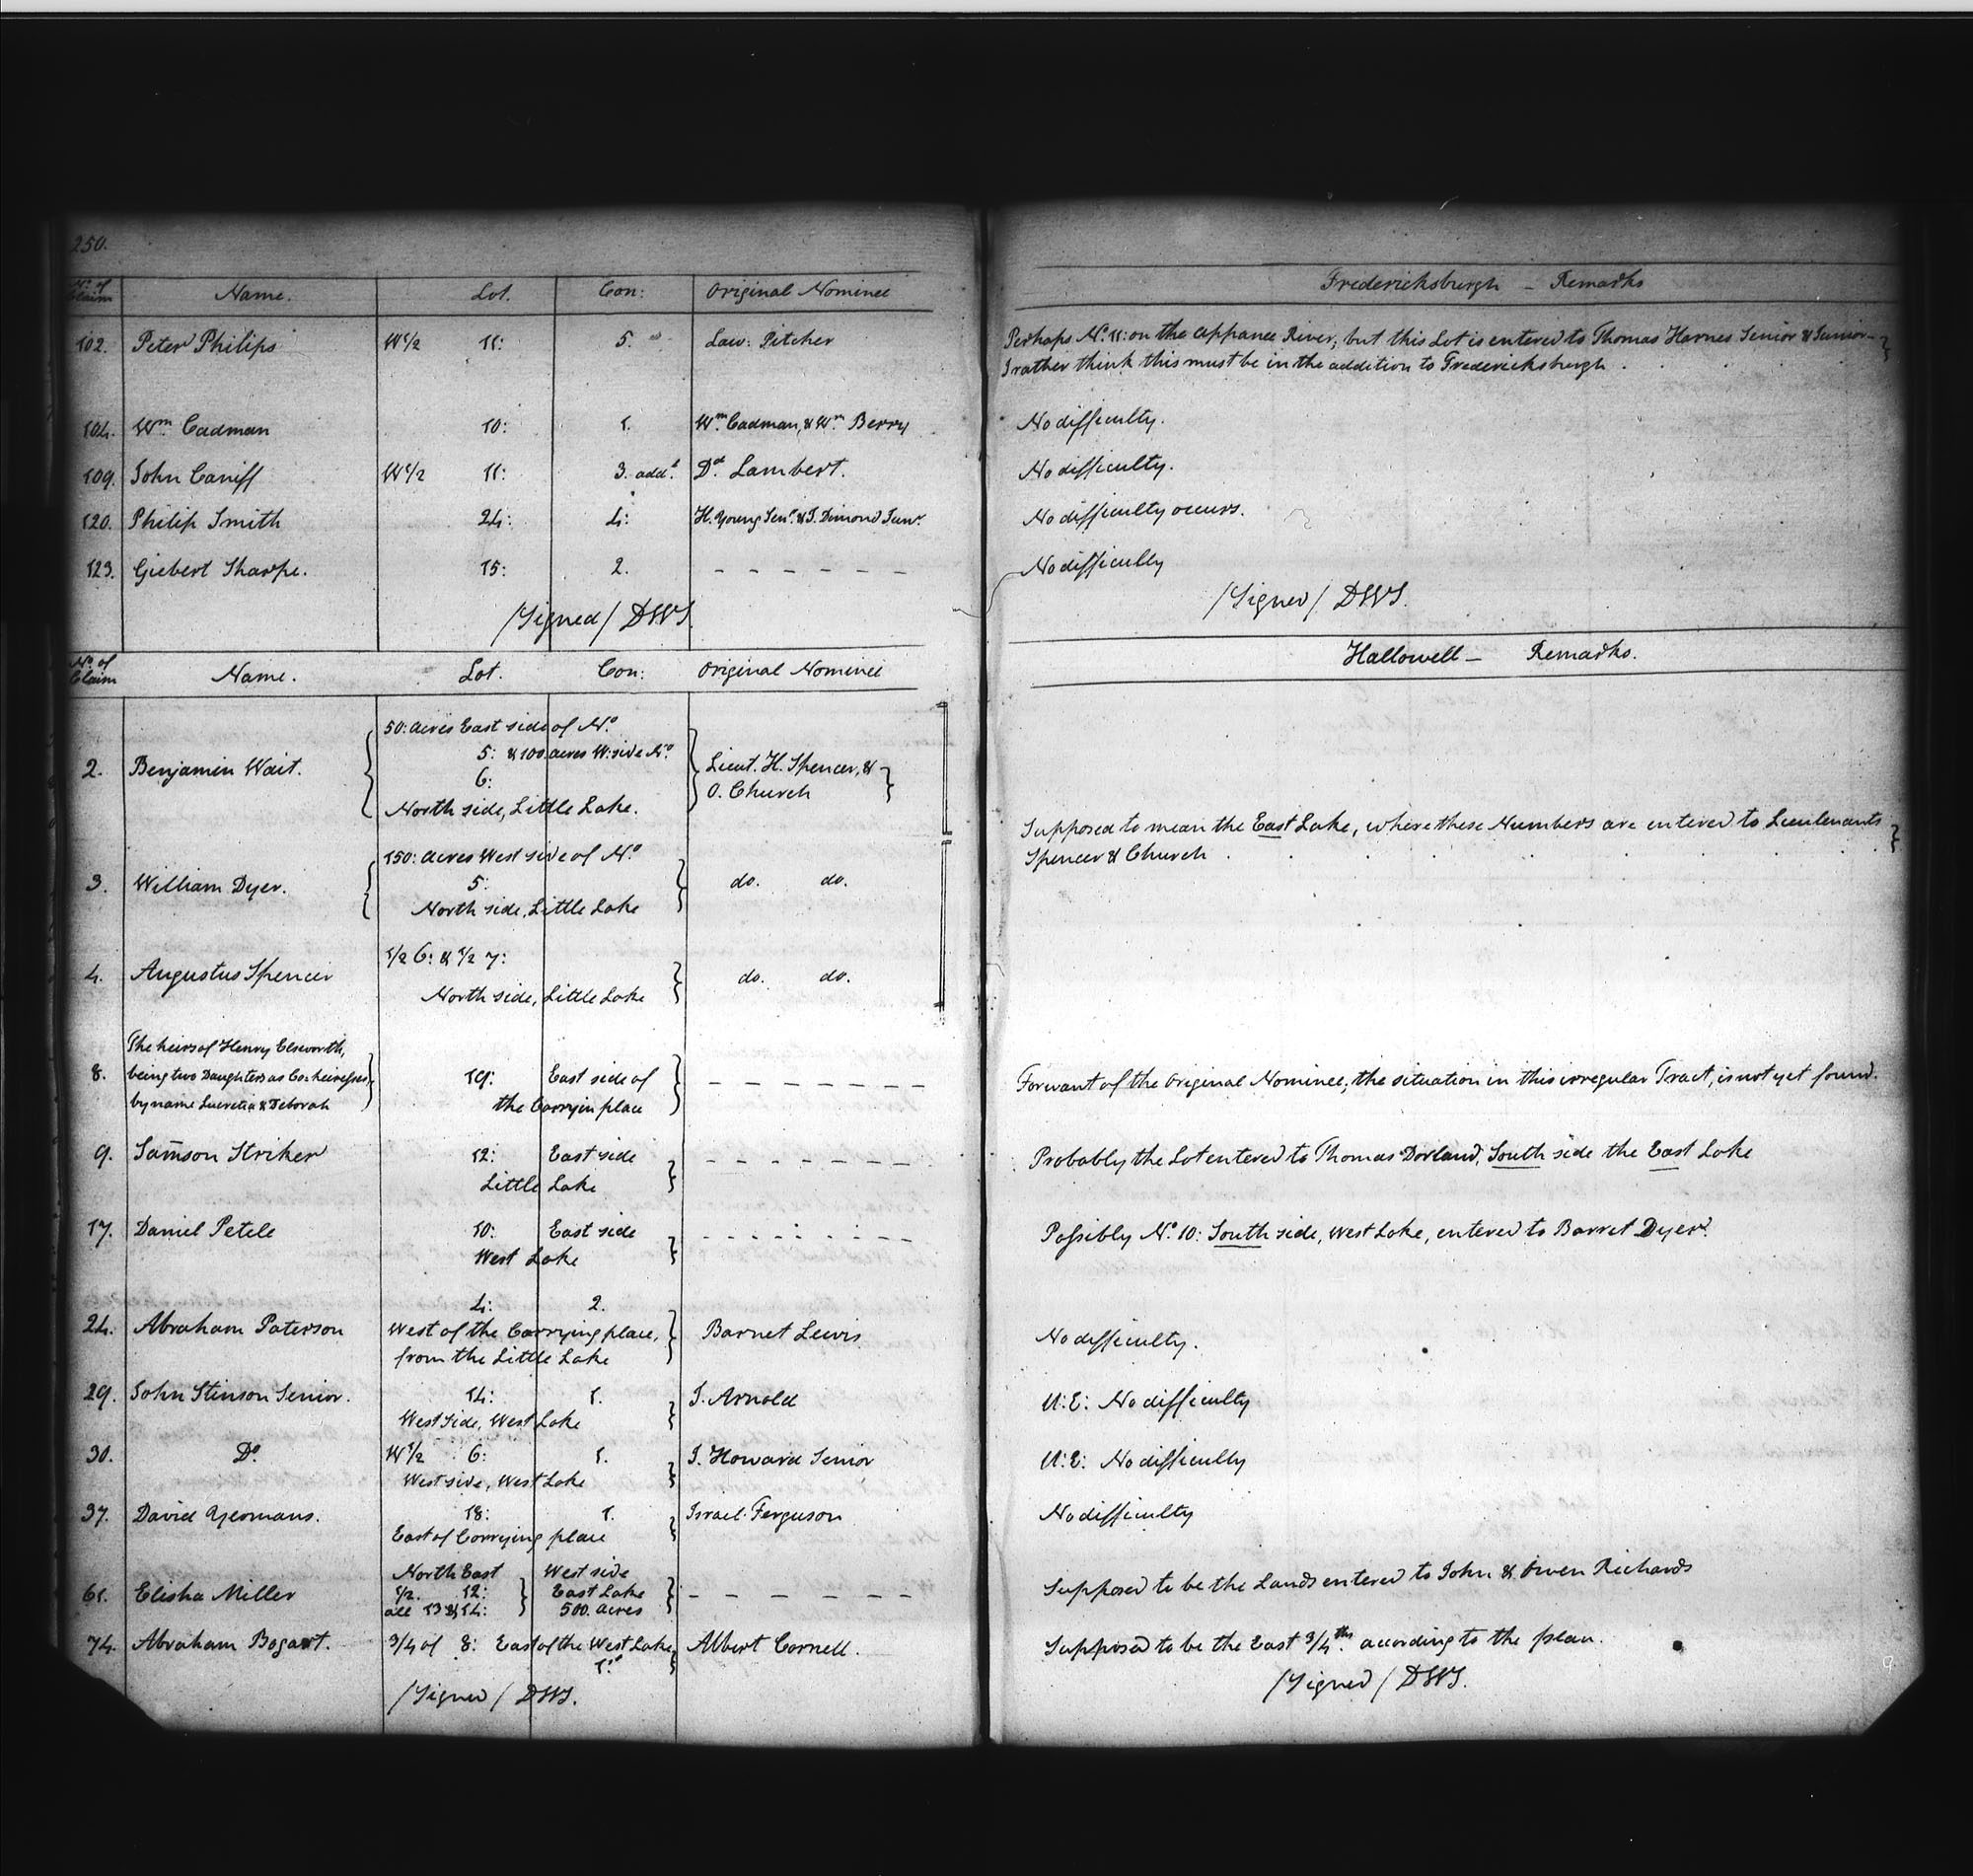 250.
No. of Claim Name. Lot. Con: Original Nominee Fredericksburgh — Remarks
102. Peter Philips W1/2 11: 5. Law: Pitcher Perhaps No. 11: on the Appanee River; but this Lot is entered to Thomas Harnes Senior & Junior—
I rather think this must be in the addition to Fredericksburgh.
104. Wm. Cadman 10: 1. Wm. Cadman, & Wm. Berry No difficulty.
109. John Caniff W1/2 11: 3. addl. Dd. Lambert. No difficulty.
120. Philip Smith 24: 4: H. Young Senr. & J. Dimond Junr. No difficulty occurs.
123. Giebert Sharpe. 15: 2. - - - - - - No difficulty
/Signed/ DWS. /Signed/ DWS.
No. of Claim Name. Lot. Con: Original Nominee Hallowell — Remarks.
50: acres East side of No.
5: & 100 acres W: side No.
2. Benjamin Wait. 6: Lieut. H. Spencer, &
O. Church
North side, Little Lake.
Supposed to mean the East Lake, where these Numbers are entered to Lieutenants
Spencer & Church.
150: acres West side of No.
3. William Dyer. 5: do. do.
North side, Little Lake
1/2 6: & 1/2 7:
4. Augustus Spencer do. do.
North side, Little Lake
The heirs of Henry Elsworth,
8. being two Daughters as Co-heiresses, 19: East side of - - - - - - - For want of the Original Nominee, the situation in this irregular Tract, is not yet found.
by name Lucretia & Deborah the Carryin place
9. Samson Striker 12: East side - - - - - - - Probably the Lot entered to Thomas Dorland, South side the East Lake
Little Lake
17. Daniel Petele 10: East side - - - - - - - Possibly No. 10: South side, West Lake, entered to Barret Dyer.
West Lake
4: 2.
24. Abraham Paterson West of the Carrying place, Barnet Lewis No difficulty.
from the Little Lake
29. John Stinson Senior. 14: 1. J. Arnold U:E: No difficulty
West side, West Lake
30. Do. W1/2 6: 1. J. Howard Senior U:E: No difficulty
West side, West Lake
37. David Yeomans. 18: 1. Israel Ferguson No difficulty
East of Carrying place
North East West side
61. Elisha Miller 1/2. 12: East Lake - - - - - - Supposed to be the Lands entered to John & Owen Richards
all 13 & 14: 500. acres
74. Abraham Bogart. 3/4 of 8: East of the West Lake, Albert Cornell. Supposed to be the East 3/4ths. according to the plan.
1:
/Signed/ DWS. /Signed/ DWS.